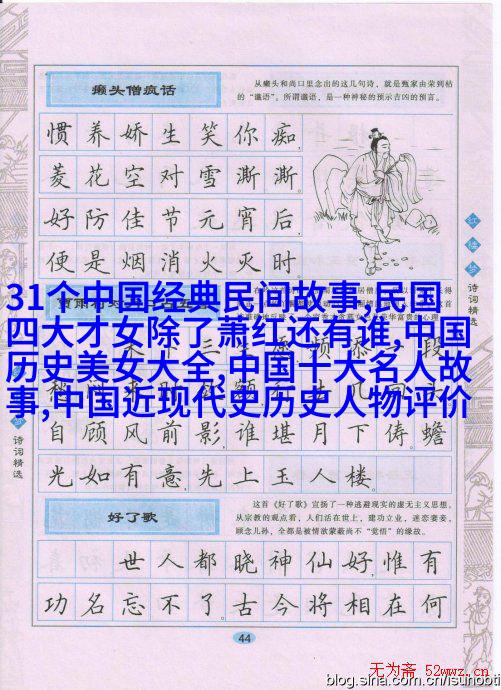 癞头僧疯话
从癞头和尚口里念出的这几句诗，就是甄家由荣到枯
的“谶语”。所谓谶语，是一种神秘的预示吉凶的预言。
惯养娇生笑你痴，
菱花空对雪澌澌。
好防佳节元宵后，
便是烟消火灭时。
31个中国经典民间故事,民国
四大才女除了萧红还有谁,中国
历史美女大全,中国十大名人故
事,中国近现代史历史人物评价
自顾风前影，谁堪月下俦？蟾
光如有意，先上玉人楼。
好了歌
这首《好了歌》宣扬了一种逃避现实的虚无主义思想。
从宗教的观点看，人们活在世上，建功立业，迷恋妻妾，
顾念儿孙，全都是被情欲蒙蔽尚不“觉悟”的缘故。
世人都晓神仙好，惟有
功名忘不了！古今将相在何
44
红楼梦
诗词精选
诗词精选
无为斋 52wwz.cn
blog.sina.com.cn/isunobti